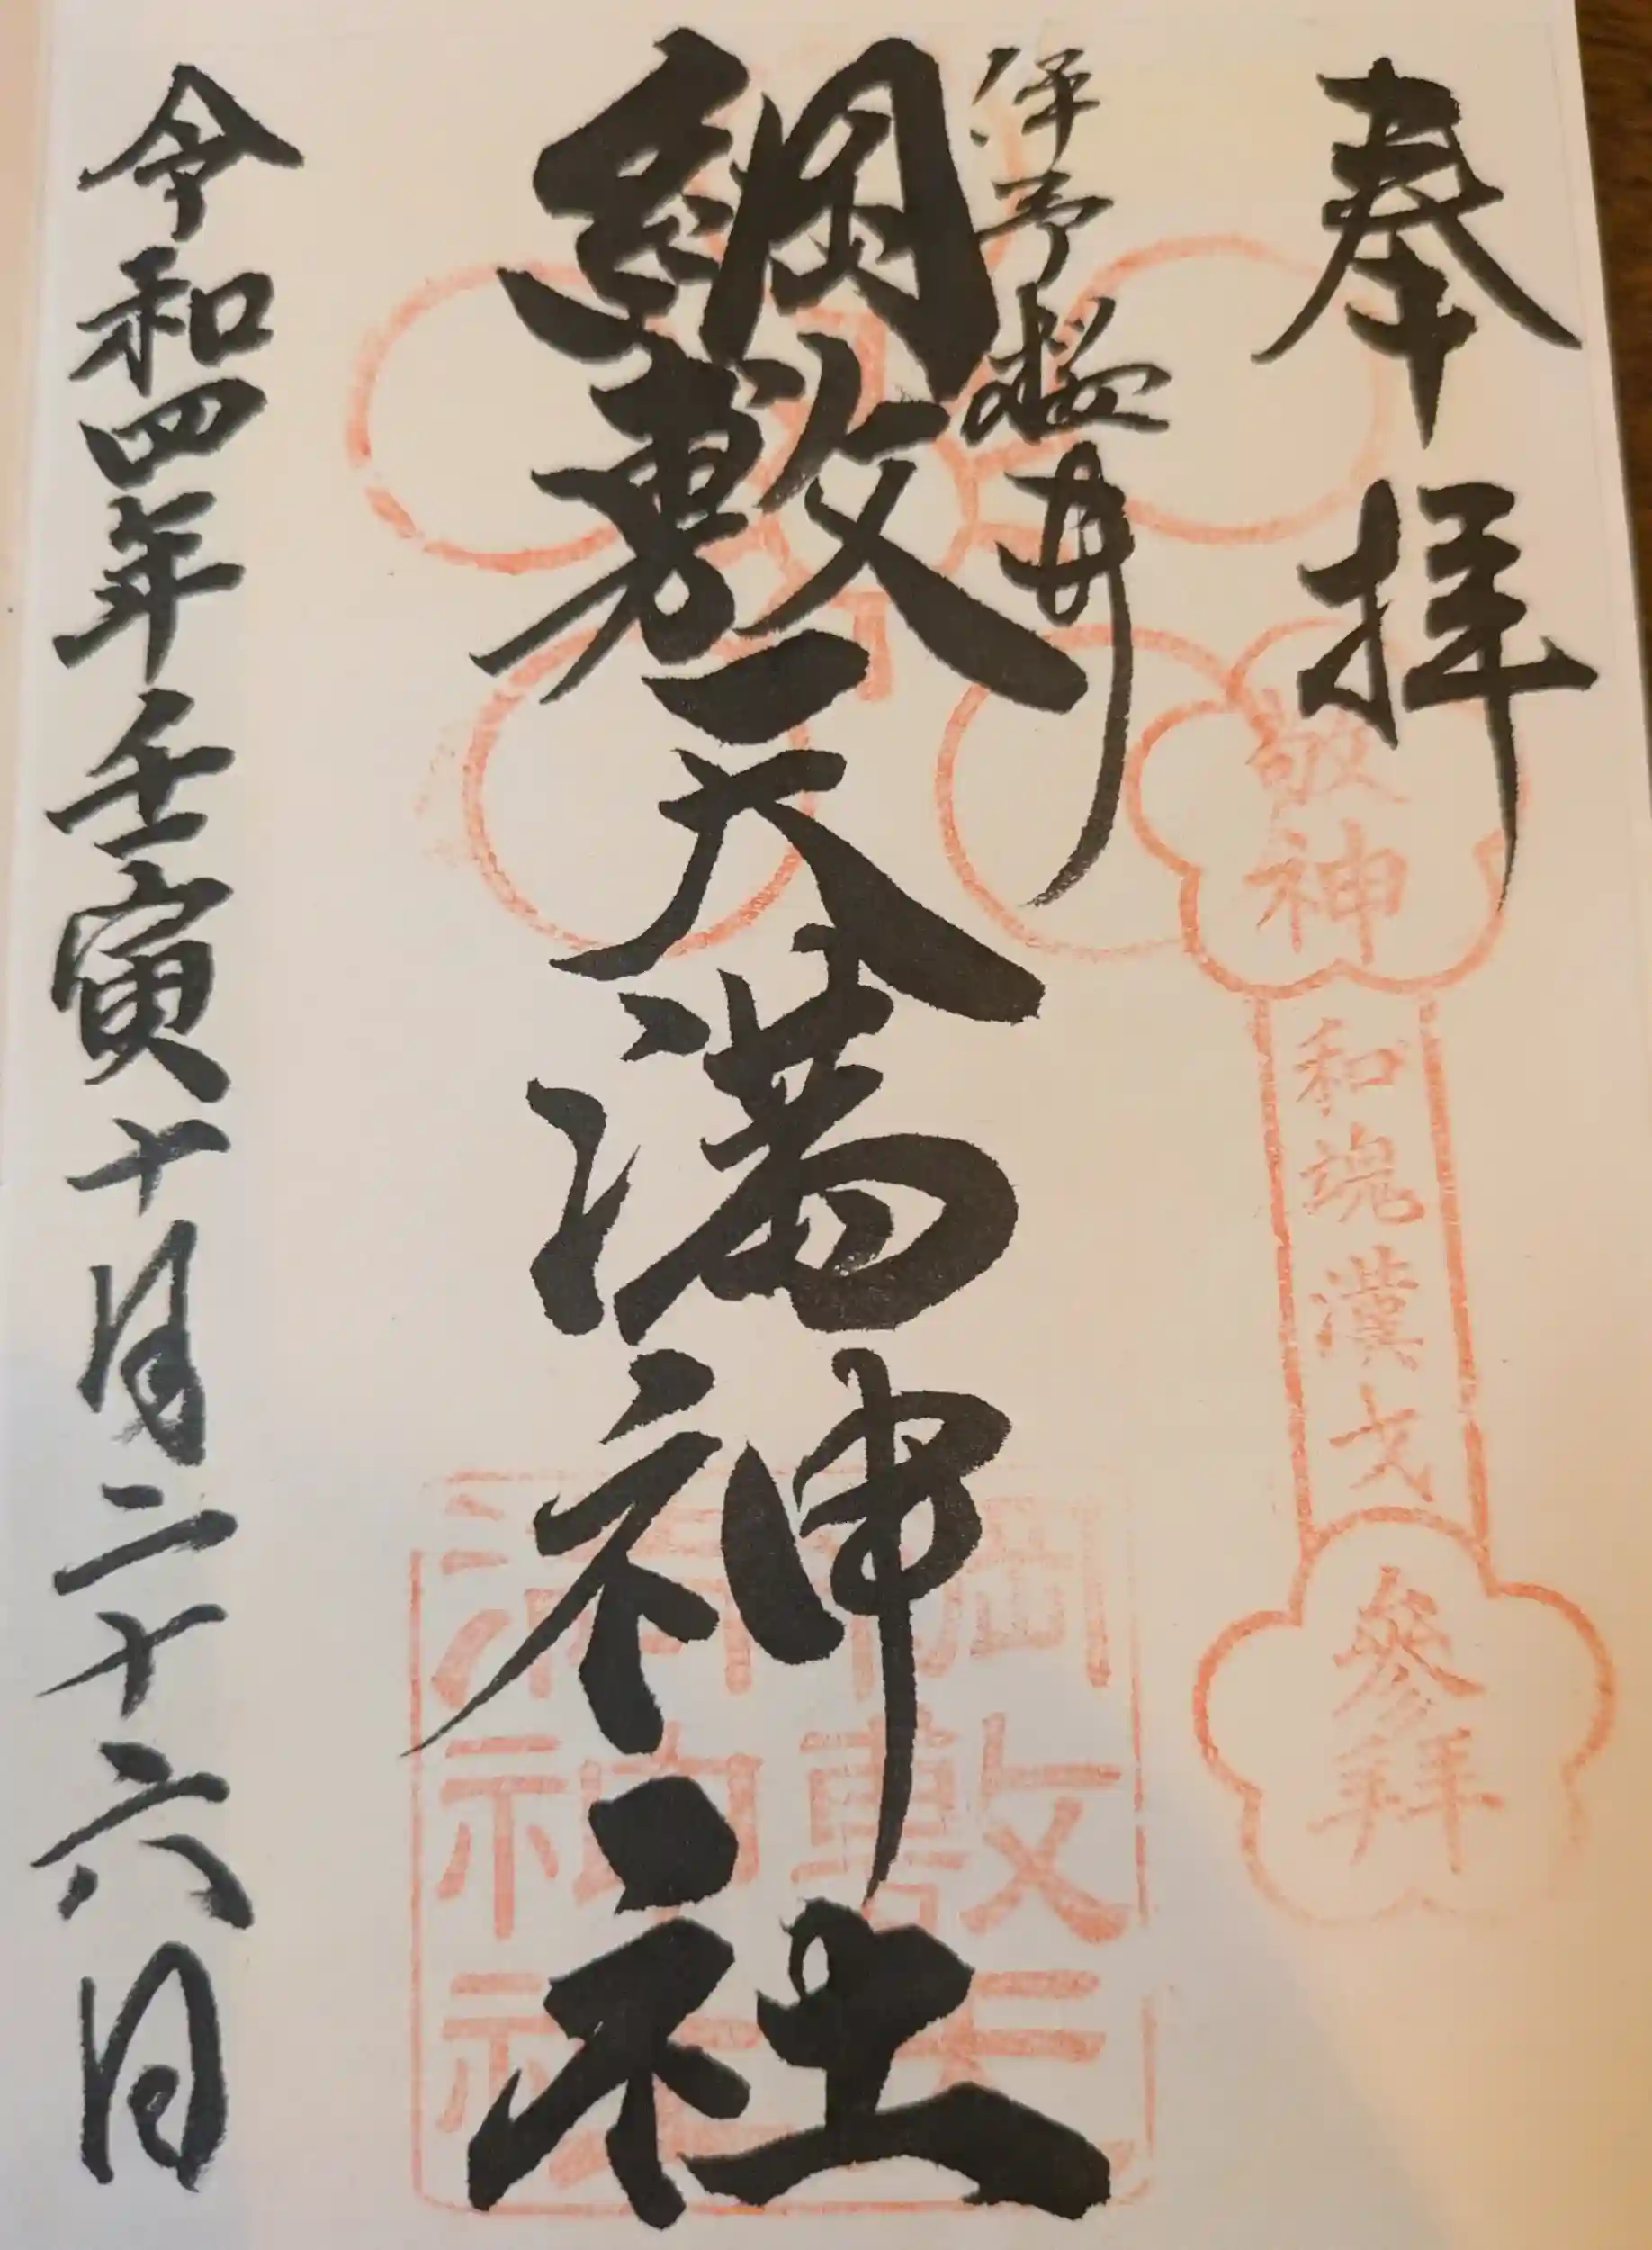 奉拝
敬神
和魂漢才
参拝
伊予桜井
綱敷天満神社
綱敷天
満神社
令和四年壬寅十月二十六日